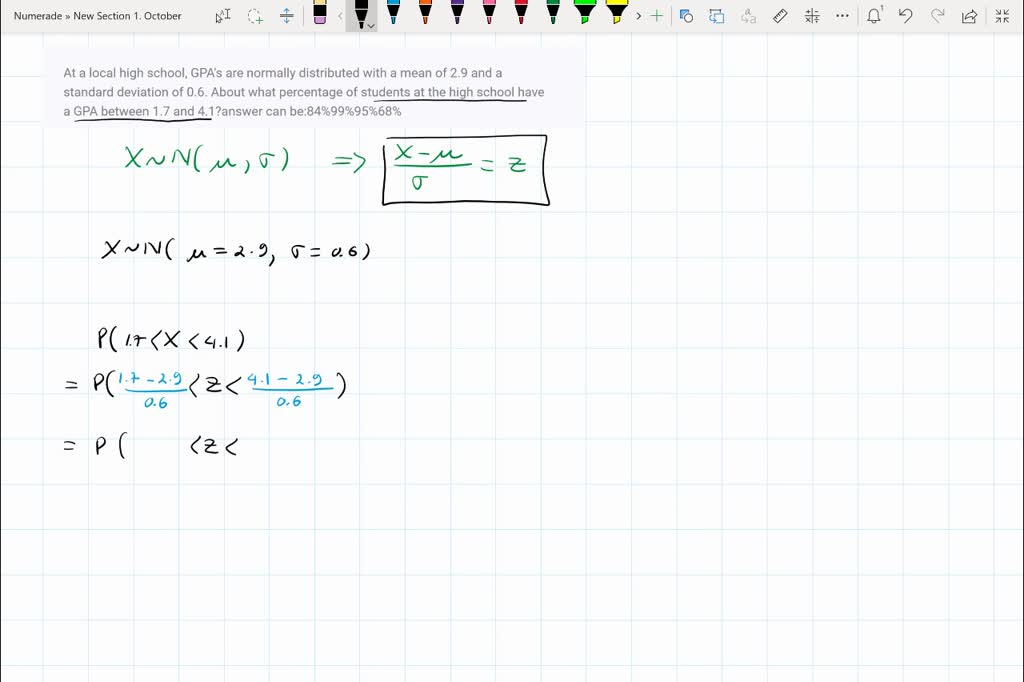 Numerade » New Section 1. October
At a local high school, GPA's are normally distributed with a mean of 2.9 and a
standard deviation of 0.6. About what percentage of students at the high school have
a GPA between 1.7 and 4.1?answer can be:84%99%95%68%
X~N(μ, σ) => X-μ/σ = z
X~N( μ = 2.9, σ = 0.6)
P( 1.7 < X < 4.1 )
= P( 1.7 - 2.9/0.6 < z < 4.1 - 2.9/0.6 )
= P ( < z <